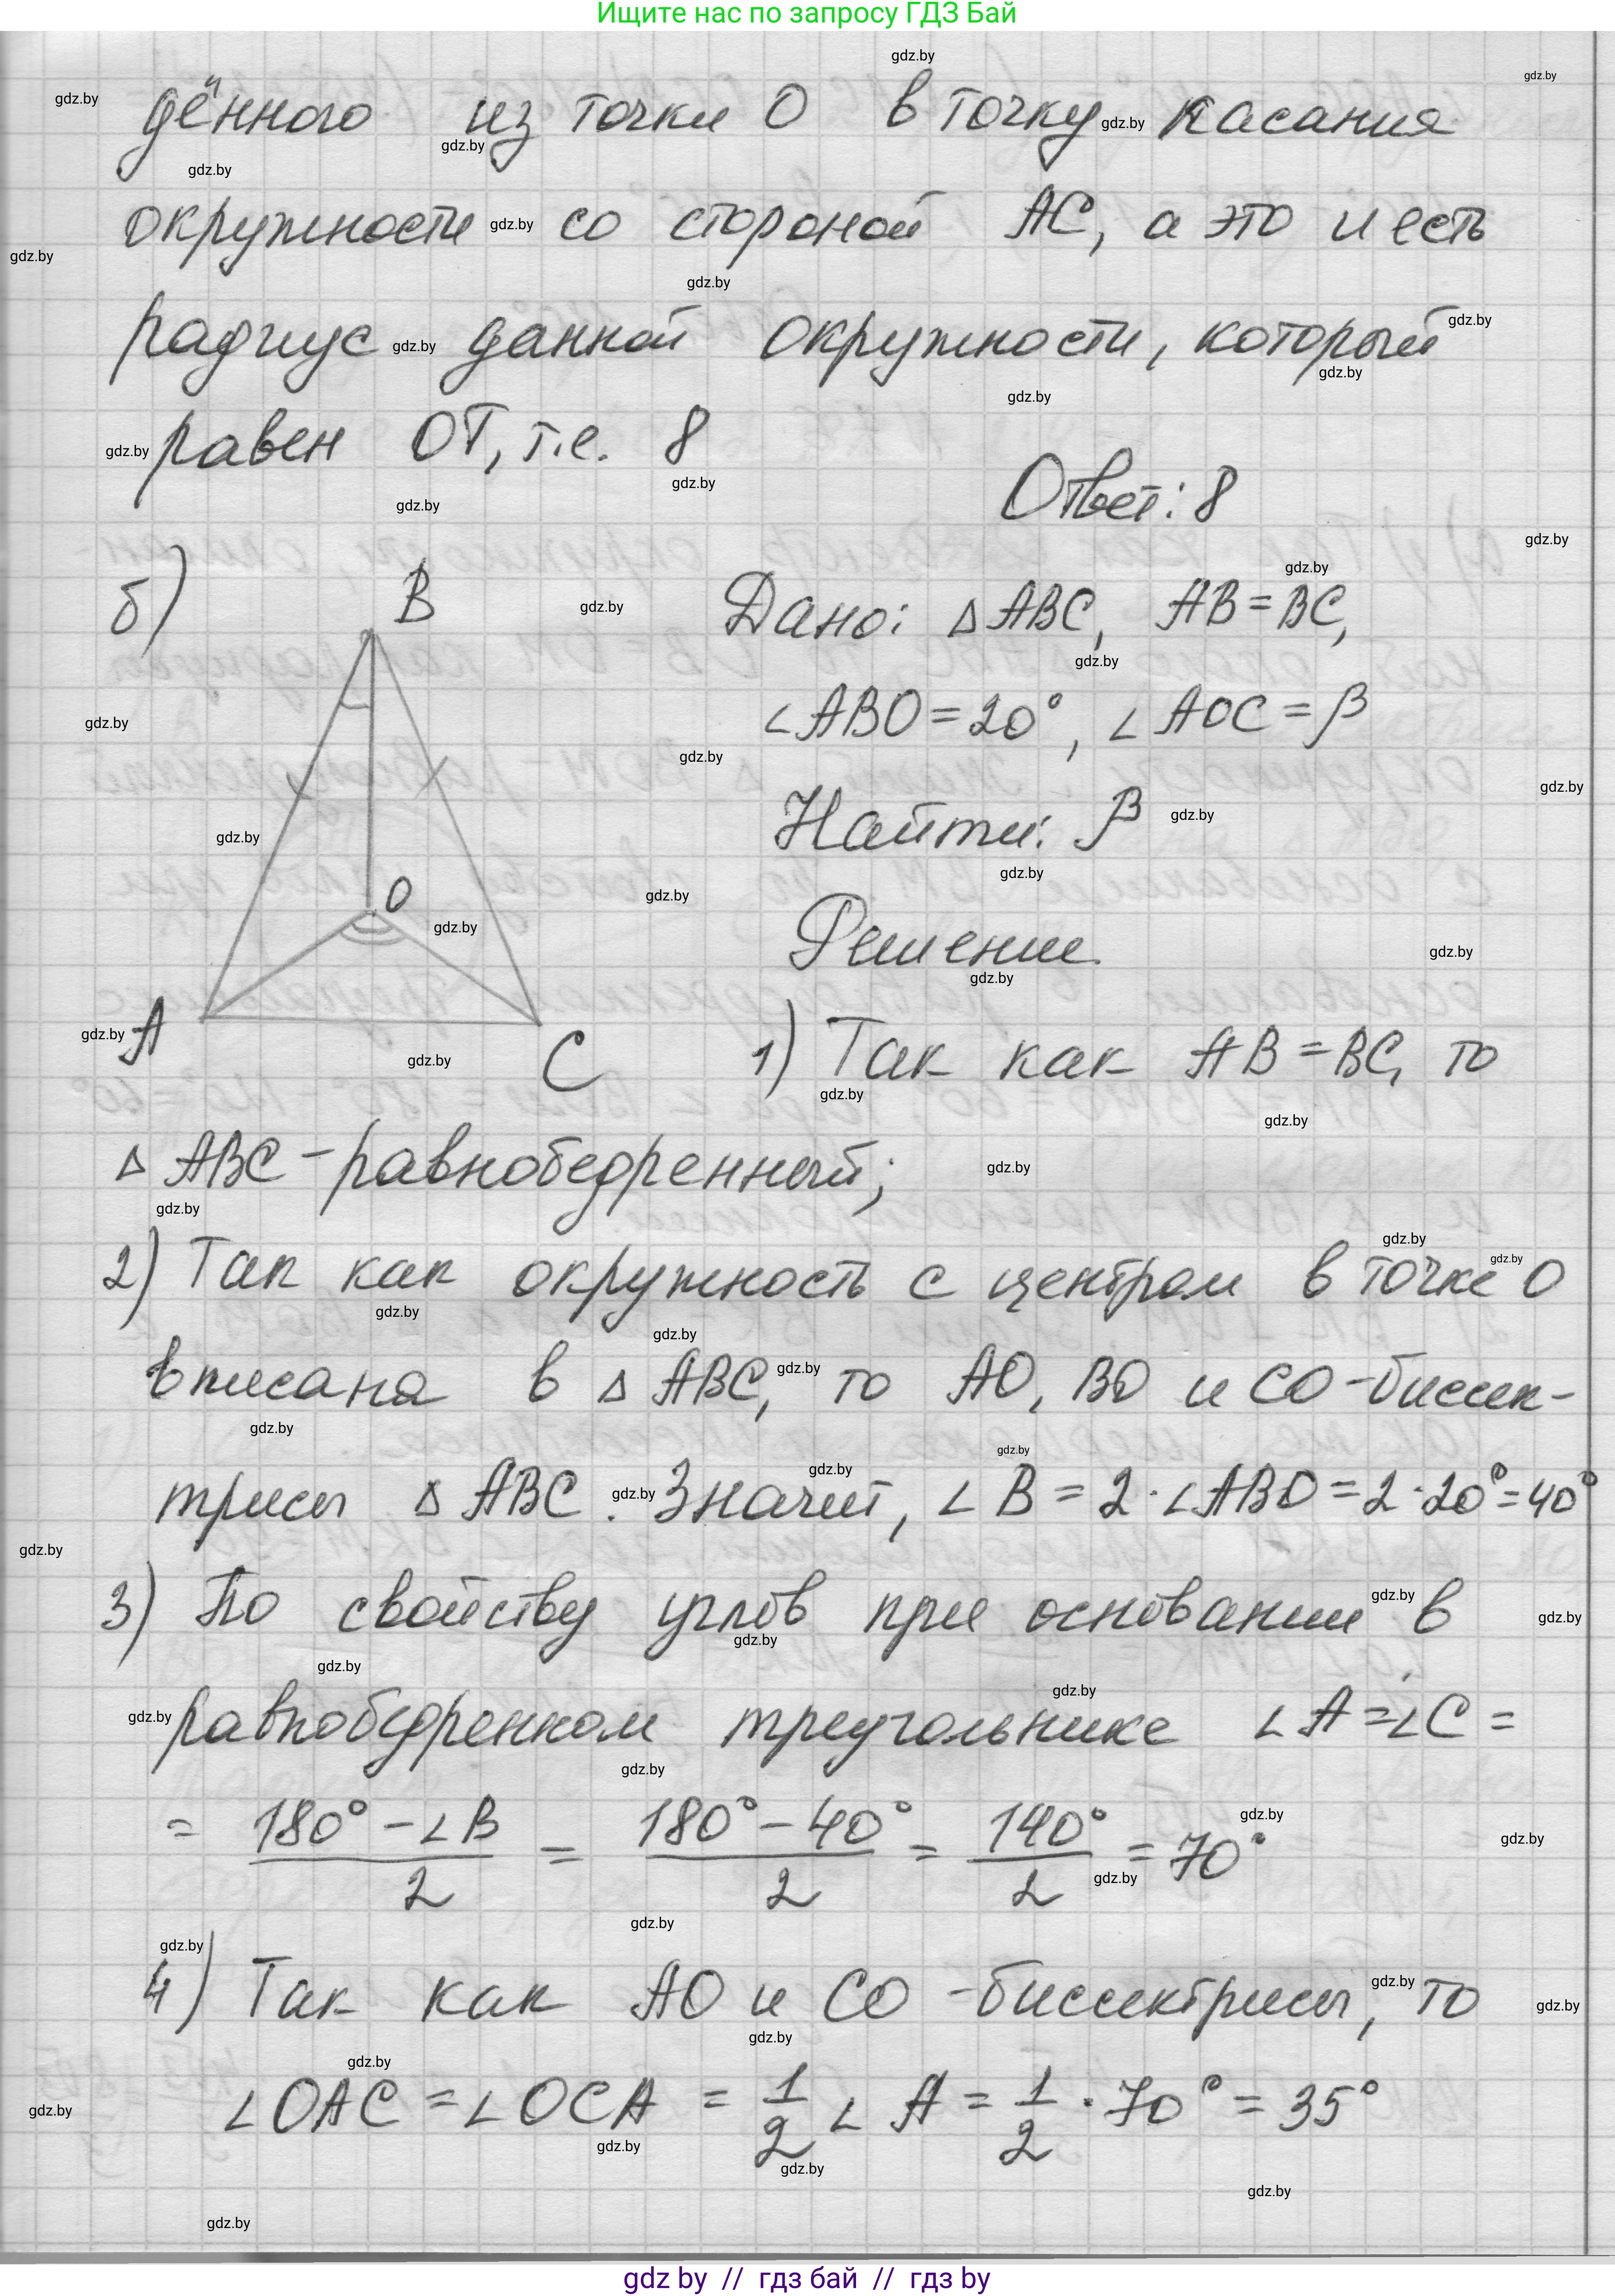 Ищите нас по запросу ГДЗ Бай
дённого из точки О в точку касания
окружности со стороной АС, а это и есть
радиус данной окружности, который
равен ОТ, т.е. 8
Ответ: 8
б)
B
Дано: △ABC, AB=BC,
∠ABO=20°, ∠AOC=β
Найти: β
O
Решение
A
C
1) Так как AB=BC, то
△ABC-равнобедренный;
2) Так как окружность с центром в точке О
вписана в △ABC, то АО, ВО и СО-биссек-
трисы △ABC. Значит, ∠B=2·∠ABO=2·20°=40°
3) По свойству углов при основании в
равнобедренном треугольнике ∠A=∠C=
= (180°-∠B)/2 = (180°-40°)/2 = 140°/2 = 70°
4) Так как АО и СО -биссектрисы, то
∠OAC=∠OCA = 1/2 ∠A = 1/2 · 70° = 35°
gdz by // гдз бай // гдз by